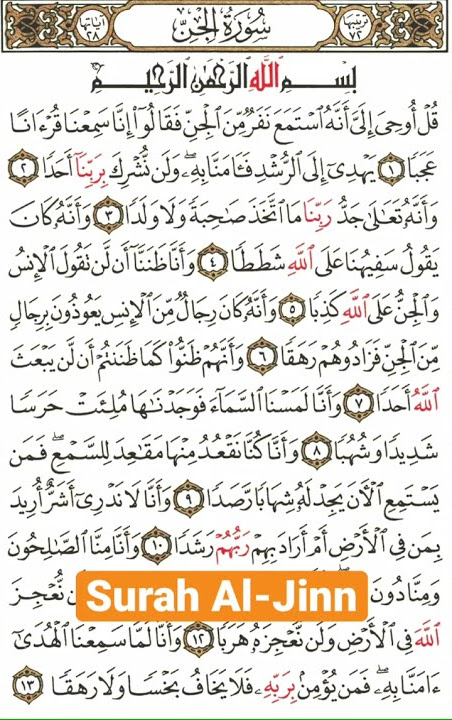 ترتيبها ٧٢ سُورَةُ الْجِنِّ آياتها ٢٨
بِسْمِ ٱللَّهِ ٱلرَّحْمَٰنِ ٱلرَّحِيمِ
قُلْ أُوحِىَ إِلَىَّ أَنَّهُ ٱسْتَمَعَ نَفَرٌ مِّنَ ٱلْجِنِّ فَقَالُوٓا۟ إِنَّا سَمِعْنَا قُرْءَانًا
عَجَبًا ١ يَهْدِىٓ إِلَى ٱلرُّشْدِ فَـَٔامَنَّا بِهِۦ وَلَن نُّشْرِكَ بِرَبِّنَآ أَحَدًا ٢
وَأَنَّهُۥ تَعَٰلَىٰ جَدُّ رَبِّنَا مَا ٱتَّخَذَ صَٰحِبَةً وَلَا وَلَدًا ٣ وَأَنَّهُۥ كَانَ
يَقُولُ سَفِيهُنَا عَلَى ٱللَّهِ شَطَطًا ٤ وَأَنَّا ظَنَنَّآ أَن لَّن تَقُولَ ٱلْإِنسُ
وَٱلْجِنُّ عَلَى ٱللَّهِ كَذِبًا ٥ وَأَنَّهُۥ كَانَ رِجَالٌ مِّنَ ٱلْإِنسِ يَعُوذُونَ بِرِجَالٍ
مِّنَ ٱلْجِنِّ فَزَادُوهُمْ رَهَقًا ٦ وَأَنَّهُمْ ظَنُّوا۟ كَمَا ظَنَنتُمْ أَن لَّن يَبْعَثَ
ٱللَّهُ أَحَدًا ٧ وَأَنَّا لَمَسْنَا ٱلسَّمَآءَ فَوَجَدْنَٰهَا مُلِئَتْ حَرَسًا
شَدِيدًا وَشُهُبًا ٨ وَأَنَّا كُنَّا نَقْعُدُ مِنْهَا مَقَٰعِدَ لِلسَّمْعِ فَمَن
يَسْتَمِعِ ٱلْـَٔانَ يَجِدْ لَهُۥ شِهَابًا رَّصَدًا ٩ وَأَنَّا لَا نَدْرِىٓ أَشَرٌّ أُرِيدَ
بِمَن فِى ٱلْأَرْضِ أَمْ أَرَادَ بِهِمْ رَبُّهُمْ رَشَدًا ١٠ وَأَنَّا مِنَّا ٱلصَّٰلِحُونَ
وَمِنَّا دُونَ نُّعْجِزَ
Surah Al-Jinn
ٱللَّهَ فِى ٱلْأَرْضِ وَلَن نُّعْجِزَهُۥ هَرَبًا ١٢ وَأَنَّا لَمَّا سَمِعْنَا ٱلْهُدَىٰٓ
ءَامَنَّا بِهِۦ فَمَن يُؤْمِنۢ بِرَبِّهِۦ فَلَا يَخَافُ بَخْسًا وَلَا رَهَقًا ١٣